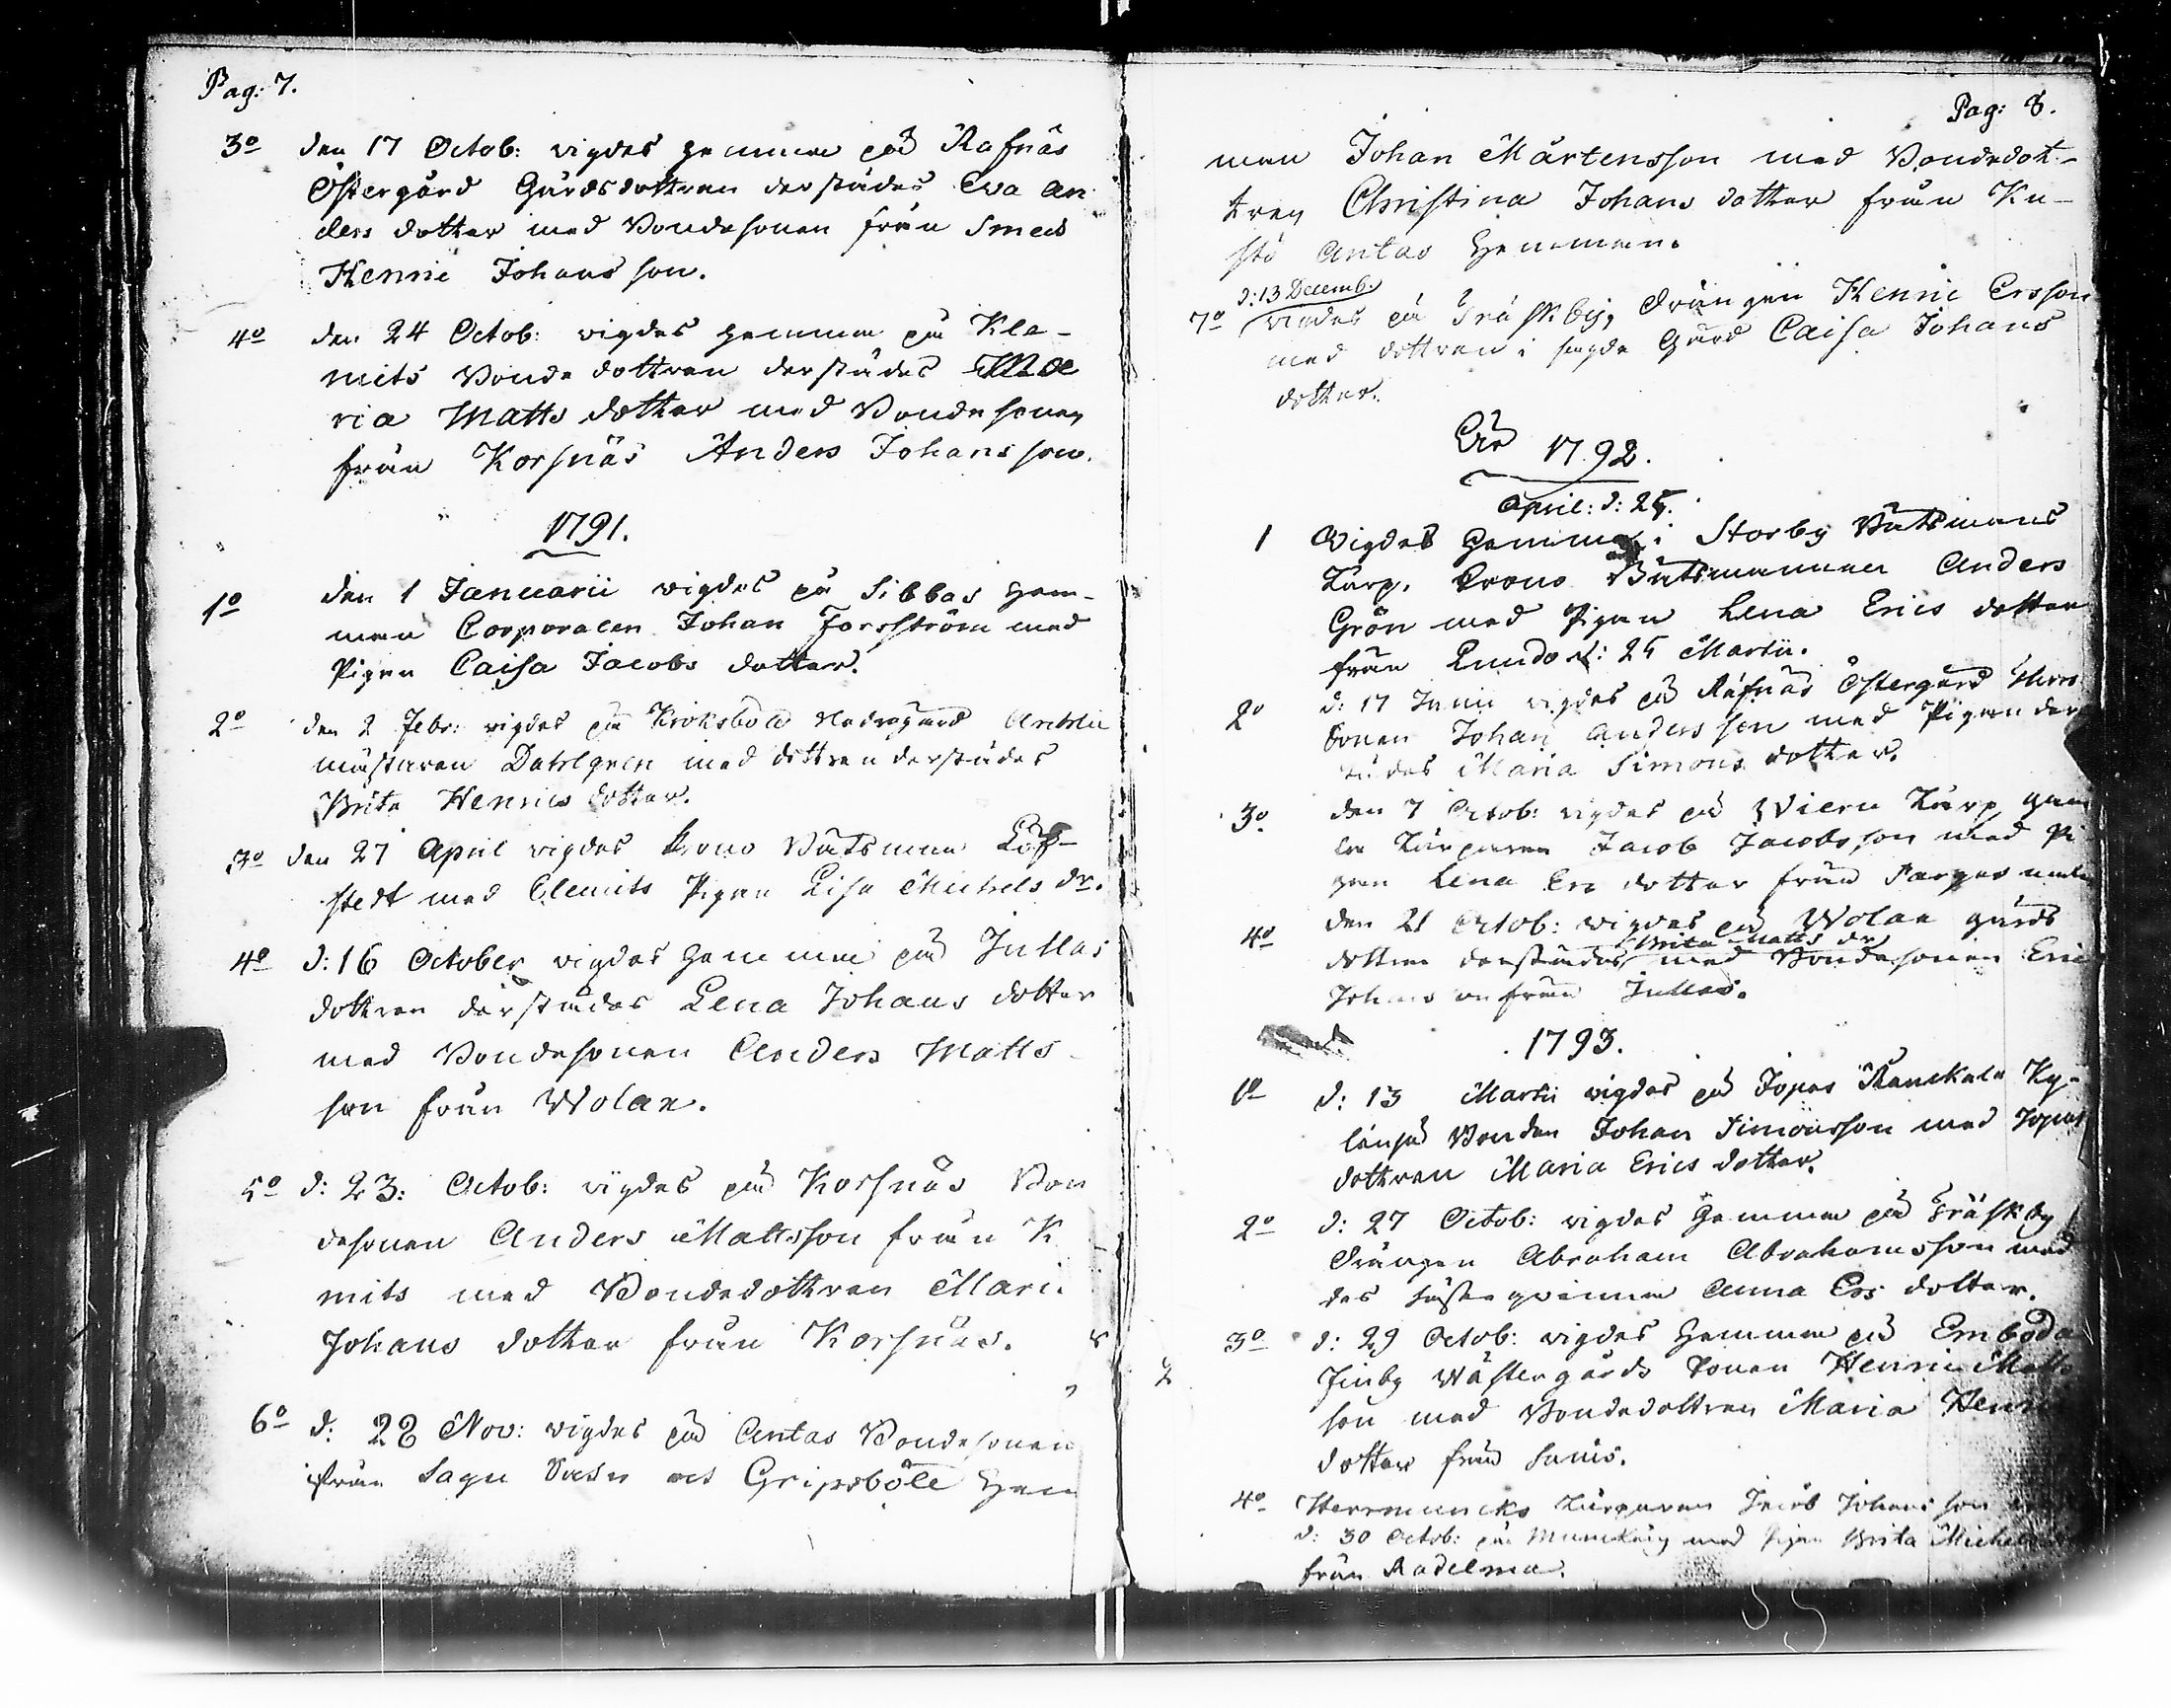 Pag: 7.
3º den 17 Octob: vigdes hemma på Rafnäs
Östergård Gårdsdottren derstädes Eva An
ders dotter med Bondesonen från Smeds
Henric Johans son.
4º den 24 Octob: vigdes hemma på Kle-
mits Bonde dottren derstädes Ma
ria Matts dotter med Bondesonen
från Korsnäs Anders Johans son.
1791.
1º den 1 Januarii vigdes på Sibbas hem-
man Corporalen Johan Forsström med
Pigan Caisa Jacobs dotter.
2º den 2 Febr: vigdes på Kroksböle Nedregård
mästaren Dahlgren med dottren derstädes
Brita Henrics dotter.
3º den 27 April vigdes Krono Båtsman Löf-
stedt med Clemits Pigan Lisa Michels dr.
4º d: 16 October vigdes hemma på Jullas
dottren derstädes Lena Johans dotter
med Bondesonen Anders Matts
son från Wolax.
5º d: 23: Octob: vigdes på Korsnäs Bon
desonen Anders Mattsson från K
mits med Bondedottren Mari
Johans dotter från Korsnäs.
6º d: 28 Nov: vigdes på Antas Bondesonen
från Sagu Gripsböle hem
Pag: 8.
man Johan Mårtensson med Bondedot-
tren Christina Johans dotter från Ku-
stö Antas hemman.
d: 13 Decemb.
7º vigdes på Träskby, Drängen Henric Ersson
med dottren i sagde Gård Caisa Johans
dotter.
År 1792.
April: d: 25.
1 Vigdes hemma i Storby Båtsmans
Torp, Krono Båtsmannen Anders
Grön med Pigan Lena Erics dotter
från Lunda d: 25 Martii.
2º d: 17 Junii vigdes på Rafnäs Östergård
Sonen Johan Anders son med Pigan der
städes Maria Simons dotter.
3º den 7 Octob: vigdes på Wiern Torp gam
le Torparen Jacob Jacobsson med Pi
gan Lena Ers dotter från Pargas
4º den 21 Octob: vigdes på Wolax gårds
Brita Matts dr
dottren derstädes med Bondesonen Eric
Johans on från Jullas.
1793.
1º d: 13 Martii vigdes på Jopas Kanckala Ky-
länpä Bonden Johan Simonsson med Jopas
dottren Maria Erics dotter.
2º d: 27 Octob: vigdes hemma på Träskby
Drängen Abraham Abrahamsson med
des fästeqvinna Anna Ers dotter.
3º d: 29 Octob: vigdes hemma på Emboda
Finby Wästergårds Sonen Henric Matts
son med Bondedottren Maria Henri
dotter från
4º Herrmuncks Torparen Jacob Johans son
d: 30 Octob: på med Pigan Brita Michels
från Radelma.